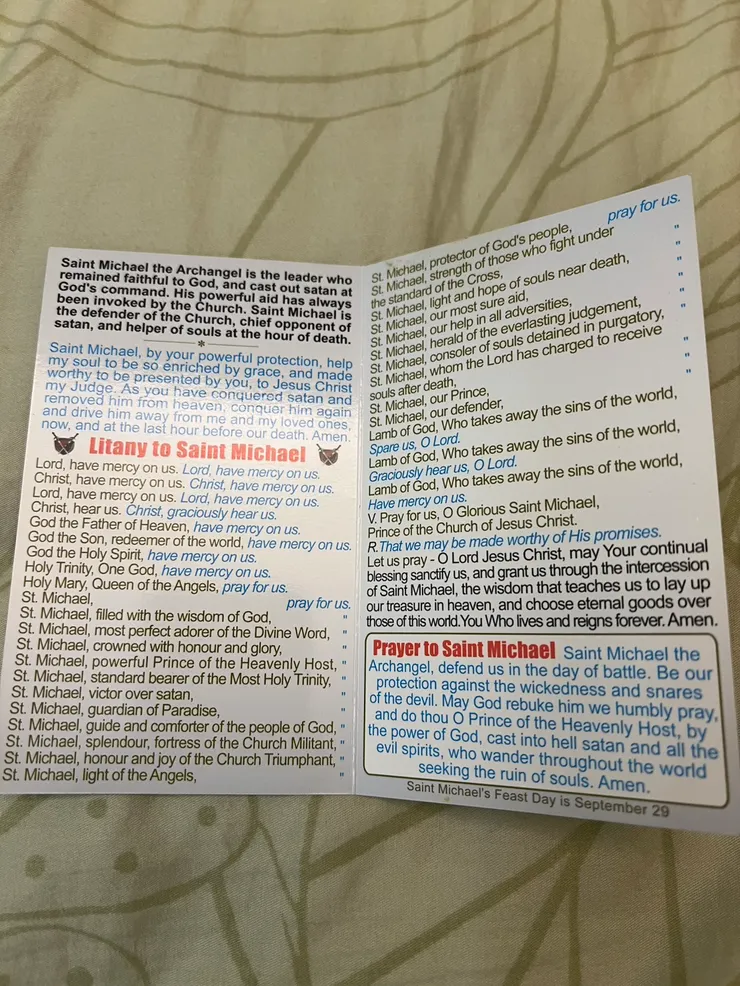 Saint Michael the Archangel is the leader who
remained faithful to God, and cast out satan at
God's command. His powerful aid has always
been invoked by the Church. Saint Michael is
the defender of the Church, chief opponent of
satan, and helper of souls at the hour of death.
*
Saint Michael, by your powerful protection, help
my soul to be so enriched by grace, and made
worthy to be presented by you, to Jesus Christ
my Judge. As you have conquered satan and
removed him from heaven, conquer him again
and drive him away from me and my loved ones,
now, and at the last hour before our death. Amen.
Litany to Saint Michael
Lord, have mercy on us. Lord, have mercy on us.
Christ, have mercy on us. Christ, have mercy on us.
Lord, have mercy on us. Lord, have mercy on us.
Christ, hear us. Christ, graciously hear us.
God the Father of Heaven, have mercy on us.
God the Son, redeemer of the world, have mercy on us.
God the Holy Spirit, have mercy on us.
Holy Trinity, One God, have mercy on us.
Holy Mary, Queen of the Angels, pray for us.
St. Michael, pray for us.
St. Michael, filled with the wisdom of God, "
St. Michael, most perfect adorer of the Divine Word, "
St. Michael, crowned with honour and glory, "
St. Michael, powerful Prince of the Heavenly Host, "
St. Michael, standard bearer of the Most Holy Trinity, "
St. Michael, victor over satan, "
St. Michael, guardian of Paradise, "
St. Michael, guide and comforter of the people of God, "
St. Michael, splendour, fortress of the Church Militant, "
St. Michael, honour and joy of the Church Triumphant, "
St. Michael, light of the Angels, "
St. Michael, protector of God's people, pray for us.
St. Michael, strength of those who fight under
the standard of the Cross, "
St. Michael, light and hope of souls near death, "
St. Michael, our most sure aid, "
St. Michael, our help in all adversities, "
St. Michael, herald of the everlasting judgement, "
St. Michael, consoler of souls detained in purgatory, "
St. Michael, whom the Lord has charged to receive
souls after death, "
St. Michael, our Prince, "
St. Michael, our defender, "
Lamb of God, Who takes away the sins of the world,
Spare us, O Lord.
Lamb of God, Who takes away the sins of the world,
Graciously hear us, O Lord.
Lamb of God, Who takes away the sins of the world,
Have mercy on us.
V. Pray for us, O Glorious Saint Michael,
Prince of the Church of Jesus Christ.
R. That we may be made worthy of His promises.
Let us pray - O Lord Jesus Christ, may Your continual
blessing sanctify us, and grant us through the intercession
of Saint Michael, the wisdom that teaches us to lay up
our treasure in heaven, and choose eternal goods over
those of this world. You Who lives and reigns forever. Amen.
Prayer to Saint Michael Saint Michael the
Archangel, defend us in the day of battle. Be our
protection against the wickedness and snares
of the devil. May God rebuke him we humbly pray,
and do thou O Prince of the Heavenly Host, by
the power of God, cast into hell satan and all the
evil spirits, who wander throughout the world
seeking the ruin of souls. Amen.
Saint Michael's Feast Day is September 29